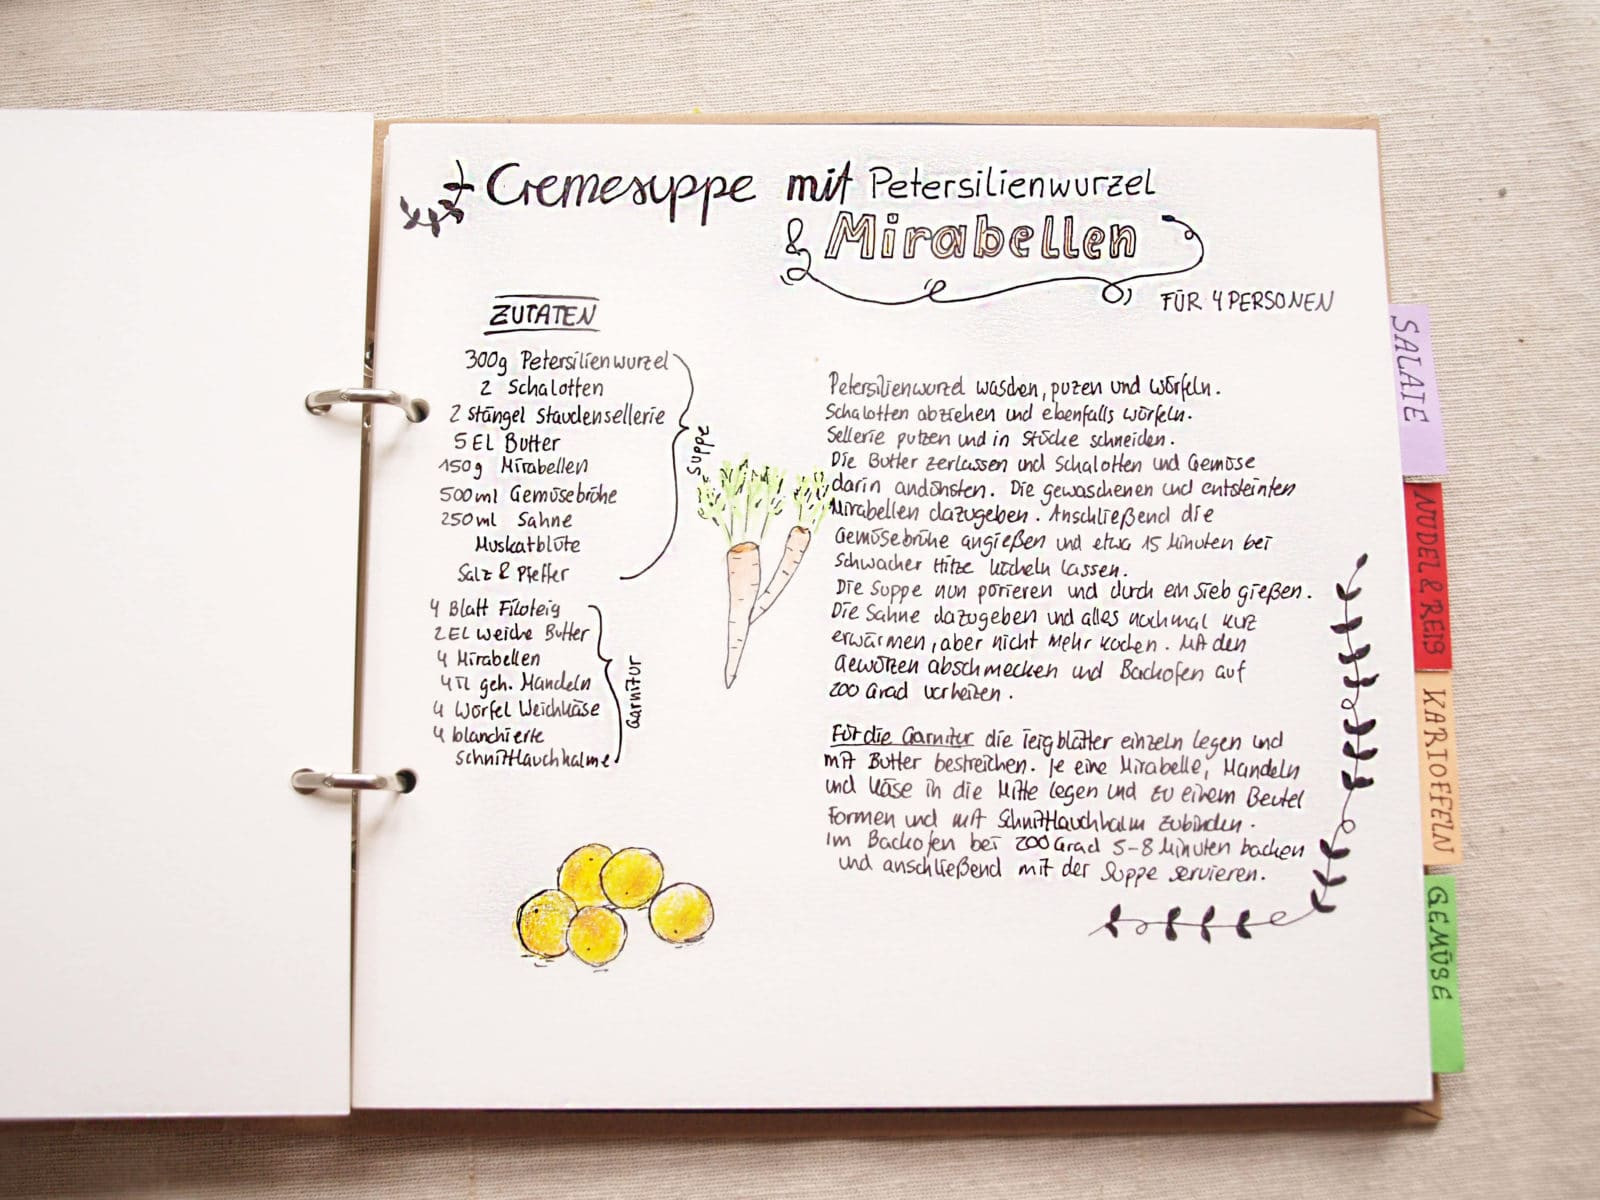 Cremesuppe mit Petersilienwurzel
& Mirabellen
FÜR 4 PERSONEN
ZUTATEN
300g Petersilienwurzel
2 Schalotten
2 Stängel Staudensellerie
5 EL Butter
150g Mirabellen
500ml Gemüsebrühe
250ml Sahne
Muskatblüte
Salz & Pfeffer
Suppe
4 Blatt Filoteig
2 EL weiche Butter
4 Mirabellen
4 TL geh. Mandeln
4 Würfel Weichkäse
4 blanchierte
Schnittlauchhalme
Garnitur
Petersilienwurzel waschen, puzen und würfeln.
Schalotten abziehen und ebenfalls würfeln.
Sellerie putzen und in Stücke schneiden.
Die Butter zerlassen und Schalotten und Gemüse
darin andünsten. Die gewaschenen und entsteinten
Mirabellen dazugeben. Anschließend die
Gemüsebrühe angießen und etwa 15 Minuten bei
schwacher Hitze köcheln lassen.
Die Suppe nun pürieren und durch ein Sieb gießen.
Die Sahne dazugeben und alles nochmal kurz
erwärmen, aber nicht mehr kochen. Mit den
Gewürzen abschmecken und Backofen auf
200 Grad vorheizen.
Für die Garnitur die Teigblätter einzeln legen und
mit Butter bestreichen. Je eine Mirabelle, Mandeln
und Käse in die Mitte legen und zu einem Beutel
formen und mit Schnittlauchhalm zubinden.
Im Backofen bei 200 Grad 5-8 Minuten backen
und anschließend mit der Suppe servieren.
SALATE
NUDEL & REIS
KARTOFFELN
GEMÜSE